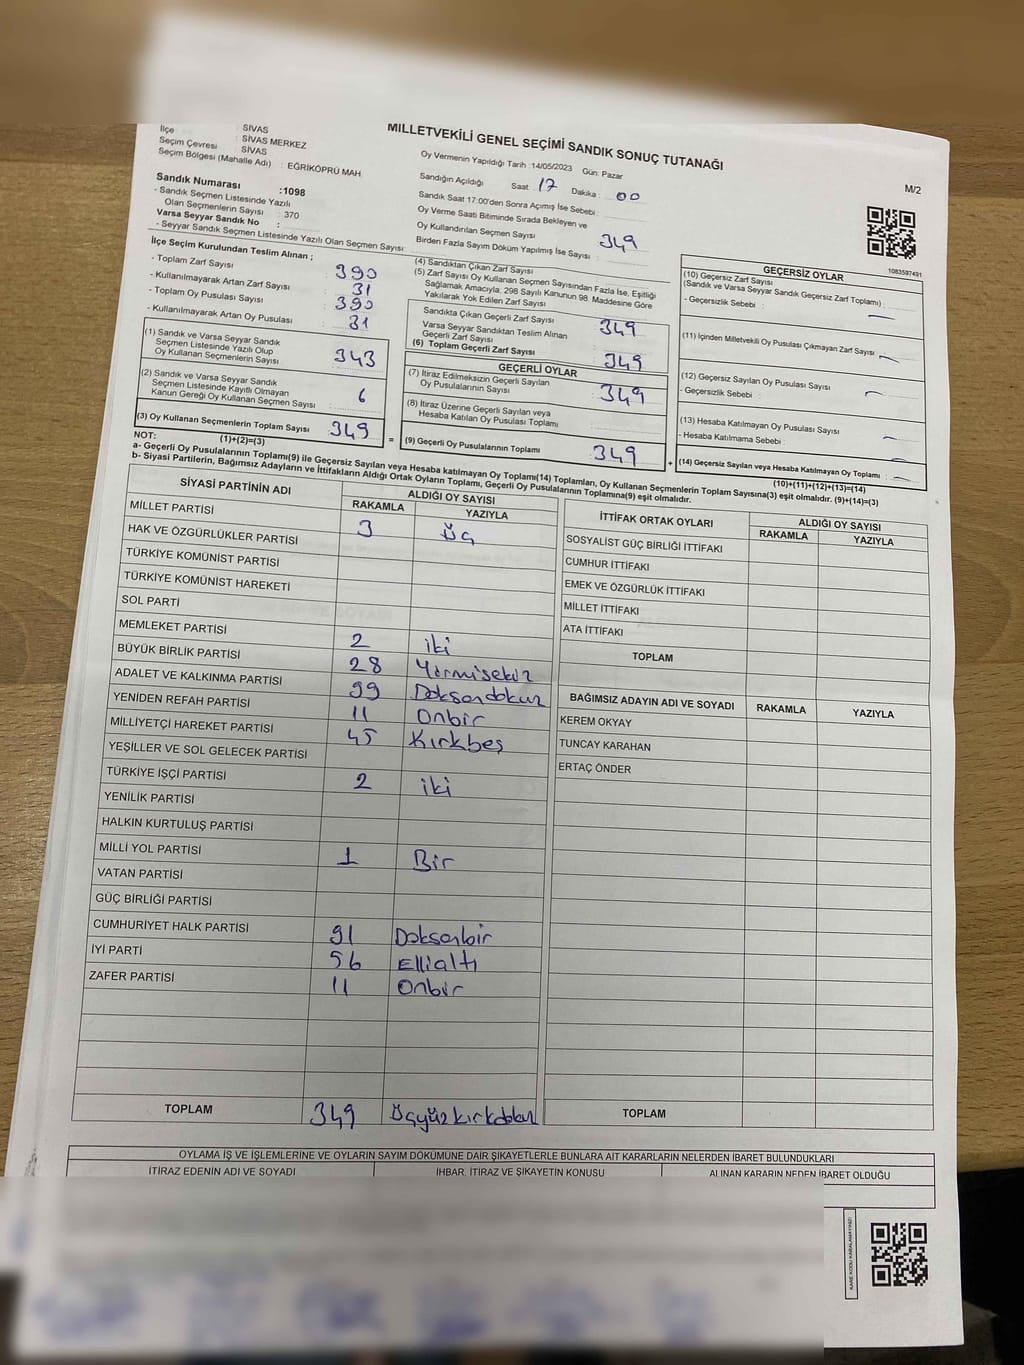 MİLLETVEKİLİ GENEL SEÇİMİ SANDIK SONUÇ TUTANAĞI
M/2
İlçe : SİVAS
: SİVAS MERKEZ
Seçim Çevresi : SİVAS
Seçim Bölgesi (Mahalle Adı) : EĞRİKÖPRÜ MAH.
Sandık Numarası :1098
- Sandık Seçmen Listesinde Yazılı
Olan Seçmenlerin Sayısı : 370
Varsa Seyyar Sandık No :
- Seyyar Sandık Seçmen Listesinde Yazılı Olan Seçmen Sayısı:
Oy Vermenin Yapıldığı Tarih :14/05/2023 Gün: Pazar
Sandığın Açıldığı Saat: 17 Dakika : 00
Sandık Saat 17:00'den Sonra Açımış İse Sebebi :
Oy Verme Saati Bitiminde Sırada Bekleyen ve
Oy Kullandırılan Seçmen Sayısı : 349
Birden Fazla Sayım Döküm Yapılmış İse Sayısı :
1083597491
İlçe Seçim Kurulundan Teslim Alınan ;
- Toplam Zarf Sayısı : 390
- Kullanılmayarak Artan Zarf Sayısı : 31
- Toplam Oy Pusulası Sayısı : 390
- Kullanılmayarak Artan Oy Pusulası : 31
(1) Sandık ve Varsa Seyyar Sandık
Seçmen Listesinde Yazılı Olup
Oy Kullanan Seçmenlerin Sayısı : 343
(2) Sandık ve Varsa Seyyar Sandık
Seçmen Listesinde Kayıtlı Olmayan
Kanun Gereği Oy Kullanan Seçmen Sayısı : 6
(3) Oy Kullanan Seçmenlerin Toplam Sayısı : 349
(1)+(2)=(3)
(4) Sandıktan Çıkan Zarf Sayısı
(5) Zarf Sayısı Oy Kullanan Seçmen Sayısından Fazla İse, Eşitliği
Sağlamak Amacıyla; 298 Sayılı Kanunun 98. Maddesine Göre
Yakılarak Yok Edilen Zarf Sayısı :
Sandıkta Çıkan Geçerli Zarf Sayısı : 349
Varsa Seyyar Sandıktan Teslim Alınan
Geçerli Zarf Sayısı :
(6) Toplam Geçerli Zarf Sayısı : 349
GEÇERLİ OYLAR
(7) İtiraz Edilmeksizin Geçerli Sayılan
Oy Pusulalarının Sayısı : 349
(8) İtiraz Üzerine Geçerli Sayılan veya
Hesaba Katılan Oy Pusulası Toplamı :
= (9) Geçerli Oy Pusulalarının Toplamı : 349
GEÇERSİZ OYLAR
(10) Geçersiz Zarf Sayısı
(Sandık ve Varsa Seyyar Sandık Geçersiz Zarf Toplamı) :
- Geçersizlik Sebebi :
(11) İçinden Milletvekili Oy Pusulası Çıkmayan Zarf Sayısı :
(12) Geçersiz Sayılan Oy Pusulası Sayısı :
- Geçersizlik Sebebi :
(13) Hesaba Katılmayan Oy Pusulası Sayısı :
- Hesaba Katılmama Sebebi :
+ (14) Geçersiz Sayılan veya Hesaba Katılmayan Oy Toplamı :
(10)+(11)+(12)+(13)=(14)
NOT:
a- Geçerli Oy Pusulalarının Toplamı(9) ile Geçersiz Sayılan veya Hesaba katılmayan Oy Toplamı(14) Toplamları, Oy Kullanan Seçmenlerin Toplam Sayısına(3) eşit olmalıdır. (9)+(14)=(3)
b- Siyasi Partilerin, Bağımsız Adayların ve İttifakların Aldığı Ortak Oyların Toplamı, Geçerli Oy Pusulalarının Toplamına(9) eşit olmalıdır.
SİYASİ PARTİNİN ADI ALDIĞI OY SAYISI
RAKAMLA YAZIYLA
MİLLET PARTİSİ 3 Üç
HAK VE ÖZGÜRLÜKLER PARTİSİ
TÜRKİYE KOMÜNİST PARTİSİ
TÜRKİYE KOMÜNİST HAREKETİ
SOL PARTİ
MEMLEKET PARTİSİ 2 iki
BÜYÜK BİRLİK PARTİSİ 28 Yirmisekiz
ADALET VE KALKINMA PARTİSİ 99 Doksandokuz
YENİDEN REFAH PARTİSİ 11 Onbir
MİLLİYETÇİ HAREKET PARTİSİ 45 Kırkbeş
YEŞİLLER VE SOL GELECEK PARTİSİ
TÜRKİYE İŞÇİ PARTİSİ 2 iki
YENİLİK PARTİSİ
HALKIN KURTULUŞ PARTİSİ
MİLLİ YOL PARTİSİ 1 Bir
VATAN PARTİSİ
GÜÇ BİRLİĞİ PARTİSİ
CUMHURİYET HALK PARTİSİ 91 Doksanbir
İYİ PARTİ 56 Ellialtı
ZAFER PARTİSİ 11 Onbir
TOPLAM 349 Üçyüzkırkdokuz
İTTİFAK ORTAK OYLARI ALDIĞI OY SAYISI
RAKAMLA YAZIYLA
SOSYALİST GÜÇ BİRLİĞİ İTTİFAKI
CUMHUR İTTİFAKI
EMEK VE ÖZGÜRLÜK İTTİFAKI
MİLLET İTTİFAKI
ATA İTTİFAKI
TOPLAM
BAĞIMSIZ ADAYIN ADI VE SOYADI RAKAMLA YAZIYLA
KEREM OKYAY
TUNCAY KARAHAN
ERTAÇ ÖNDER
TOPLAM
OYLAMA İŞ VE İŞLEMLERİNE VE OYLARIN SAYIM DÖKÜMÜNE DAİR ŞİKAYETLERLE BUNLARA AİT KARARLARIN NELERDEN İBARET BULUNDUKLARI
İTİRAZ EDENİN ADI VE SOYADI İHBAR, İTİRAZ VE ŞİKAYETİN KONUSU ALINAN KARARIN NEDEN İBARET OLDUĞU
KARE KODU KARALAMAYINIZ!